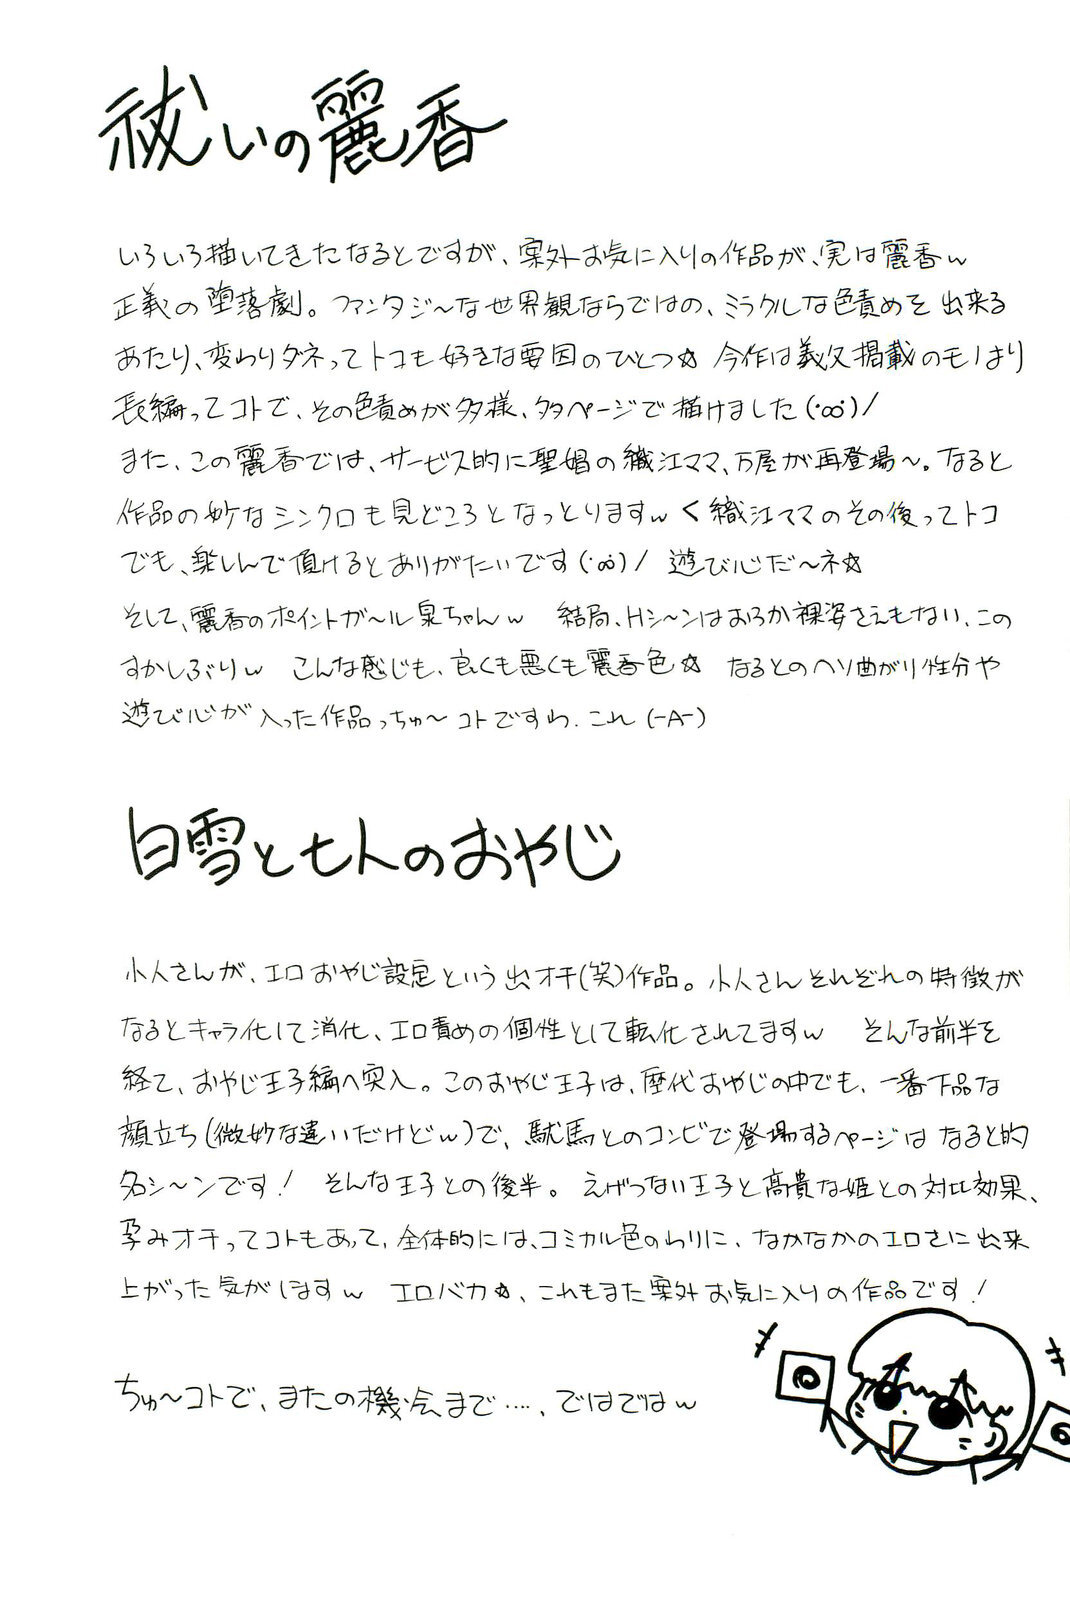 祓いの麗香
いろいろ描いてきたなるとですが、案外お気に入りの作品が、実は麗香w
正義の堕落劇。ファンタジ～な世界観ならではの、ミラクルな色責めを出来る
あたり、変わりダネってトコも好きな要因のひとつ☆ 今作は義父掲載のモノより
長編ってコトで、その色責めが多様、多ページで描けました(・∞・)/
また、この麗香では、サービス的に聖娼の織江ママ、万屋が再登場～。なると
作品の妙なシンクロも見どころとなっとりますw く織江ママのその後ってトコ
でも、楽しんで頂けるとありがたいです(・∞・)/ 遊び心だ～ネ☆
そして、麗香のポイントガ～ル泉ちゃんw 結局、Hシ～ンはおろか裸姿さえもない、この
すかしぶりw こんな感じも、良くも悪くも麗香色☆ なるとのヘソ曲がり性分や
遊び心が入った作品っちゅ～コトですわ、これ(-A-)
白雪と七人のおやじ
小人さんが、エロおやじ設定という出オチ(笑)作品。小人さんそれぞれの特徴が
なるとキャラ化して消化、エロ責めの個性として転化されてますw そんな前半を
経て、おやじ王子編へ突入。このおやじ王子は、歴代おやじの中でも、一番下品な
顔立ち(微妙な違いだけどw)で、駄馬とのコンビで登場するページはなると的
名シ～ンです! そんな王子との後半。えげつない王子と高貴な姫との対比効果、
孕みオチってコトもあって、全体的には、コミカル色のわりに、なかなかのエロさに出来
上がった気がしますw エロバカ☆、これもまた案外お気に入りの作品です!
ちゅ～コトで、またの機会まで‥‥、ではではw